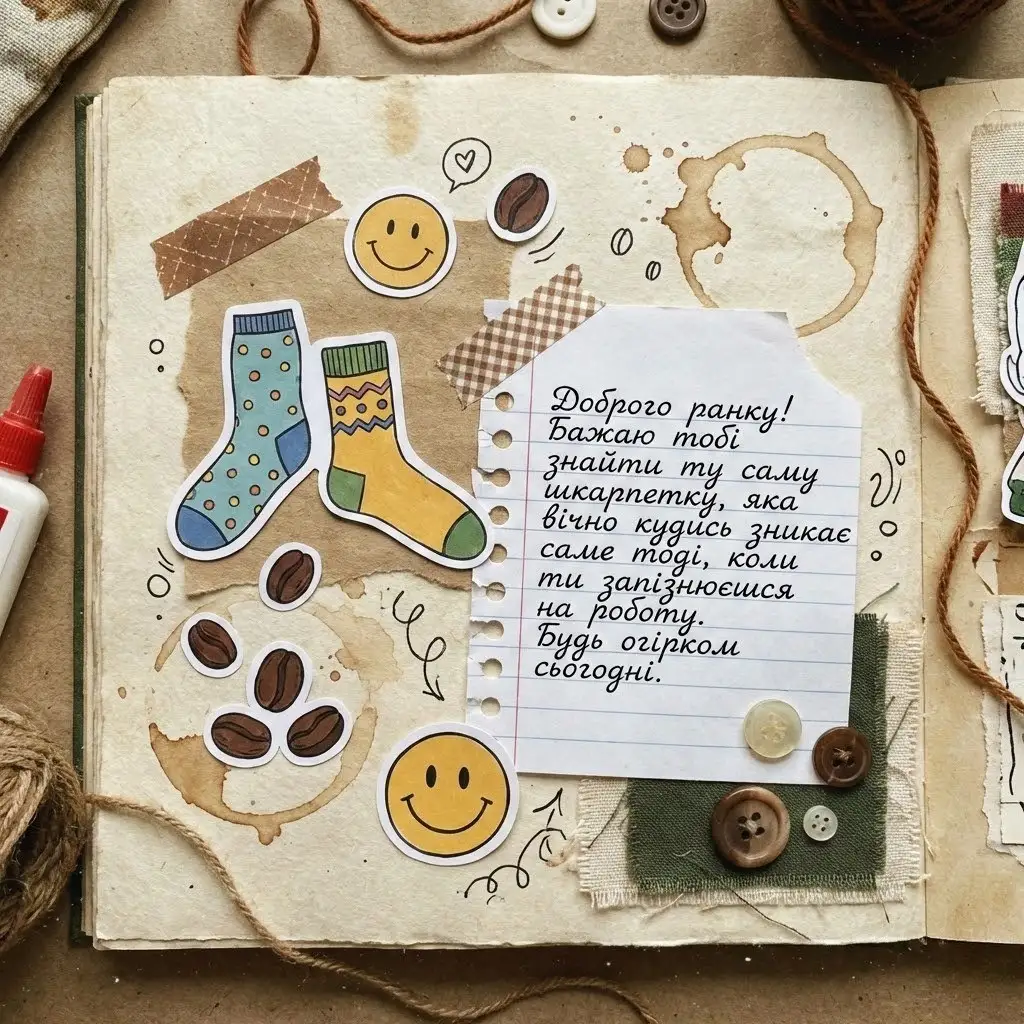 Доброго ранку!
Бажаю тобі
знайти ту саму
шкарпетку, яка
вічно кудись зникає
саме тоді, коли
ти запізнюєшся
на роботу.
Будь огірком
сьогодні.